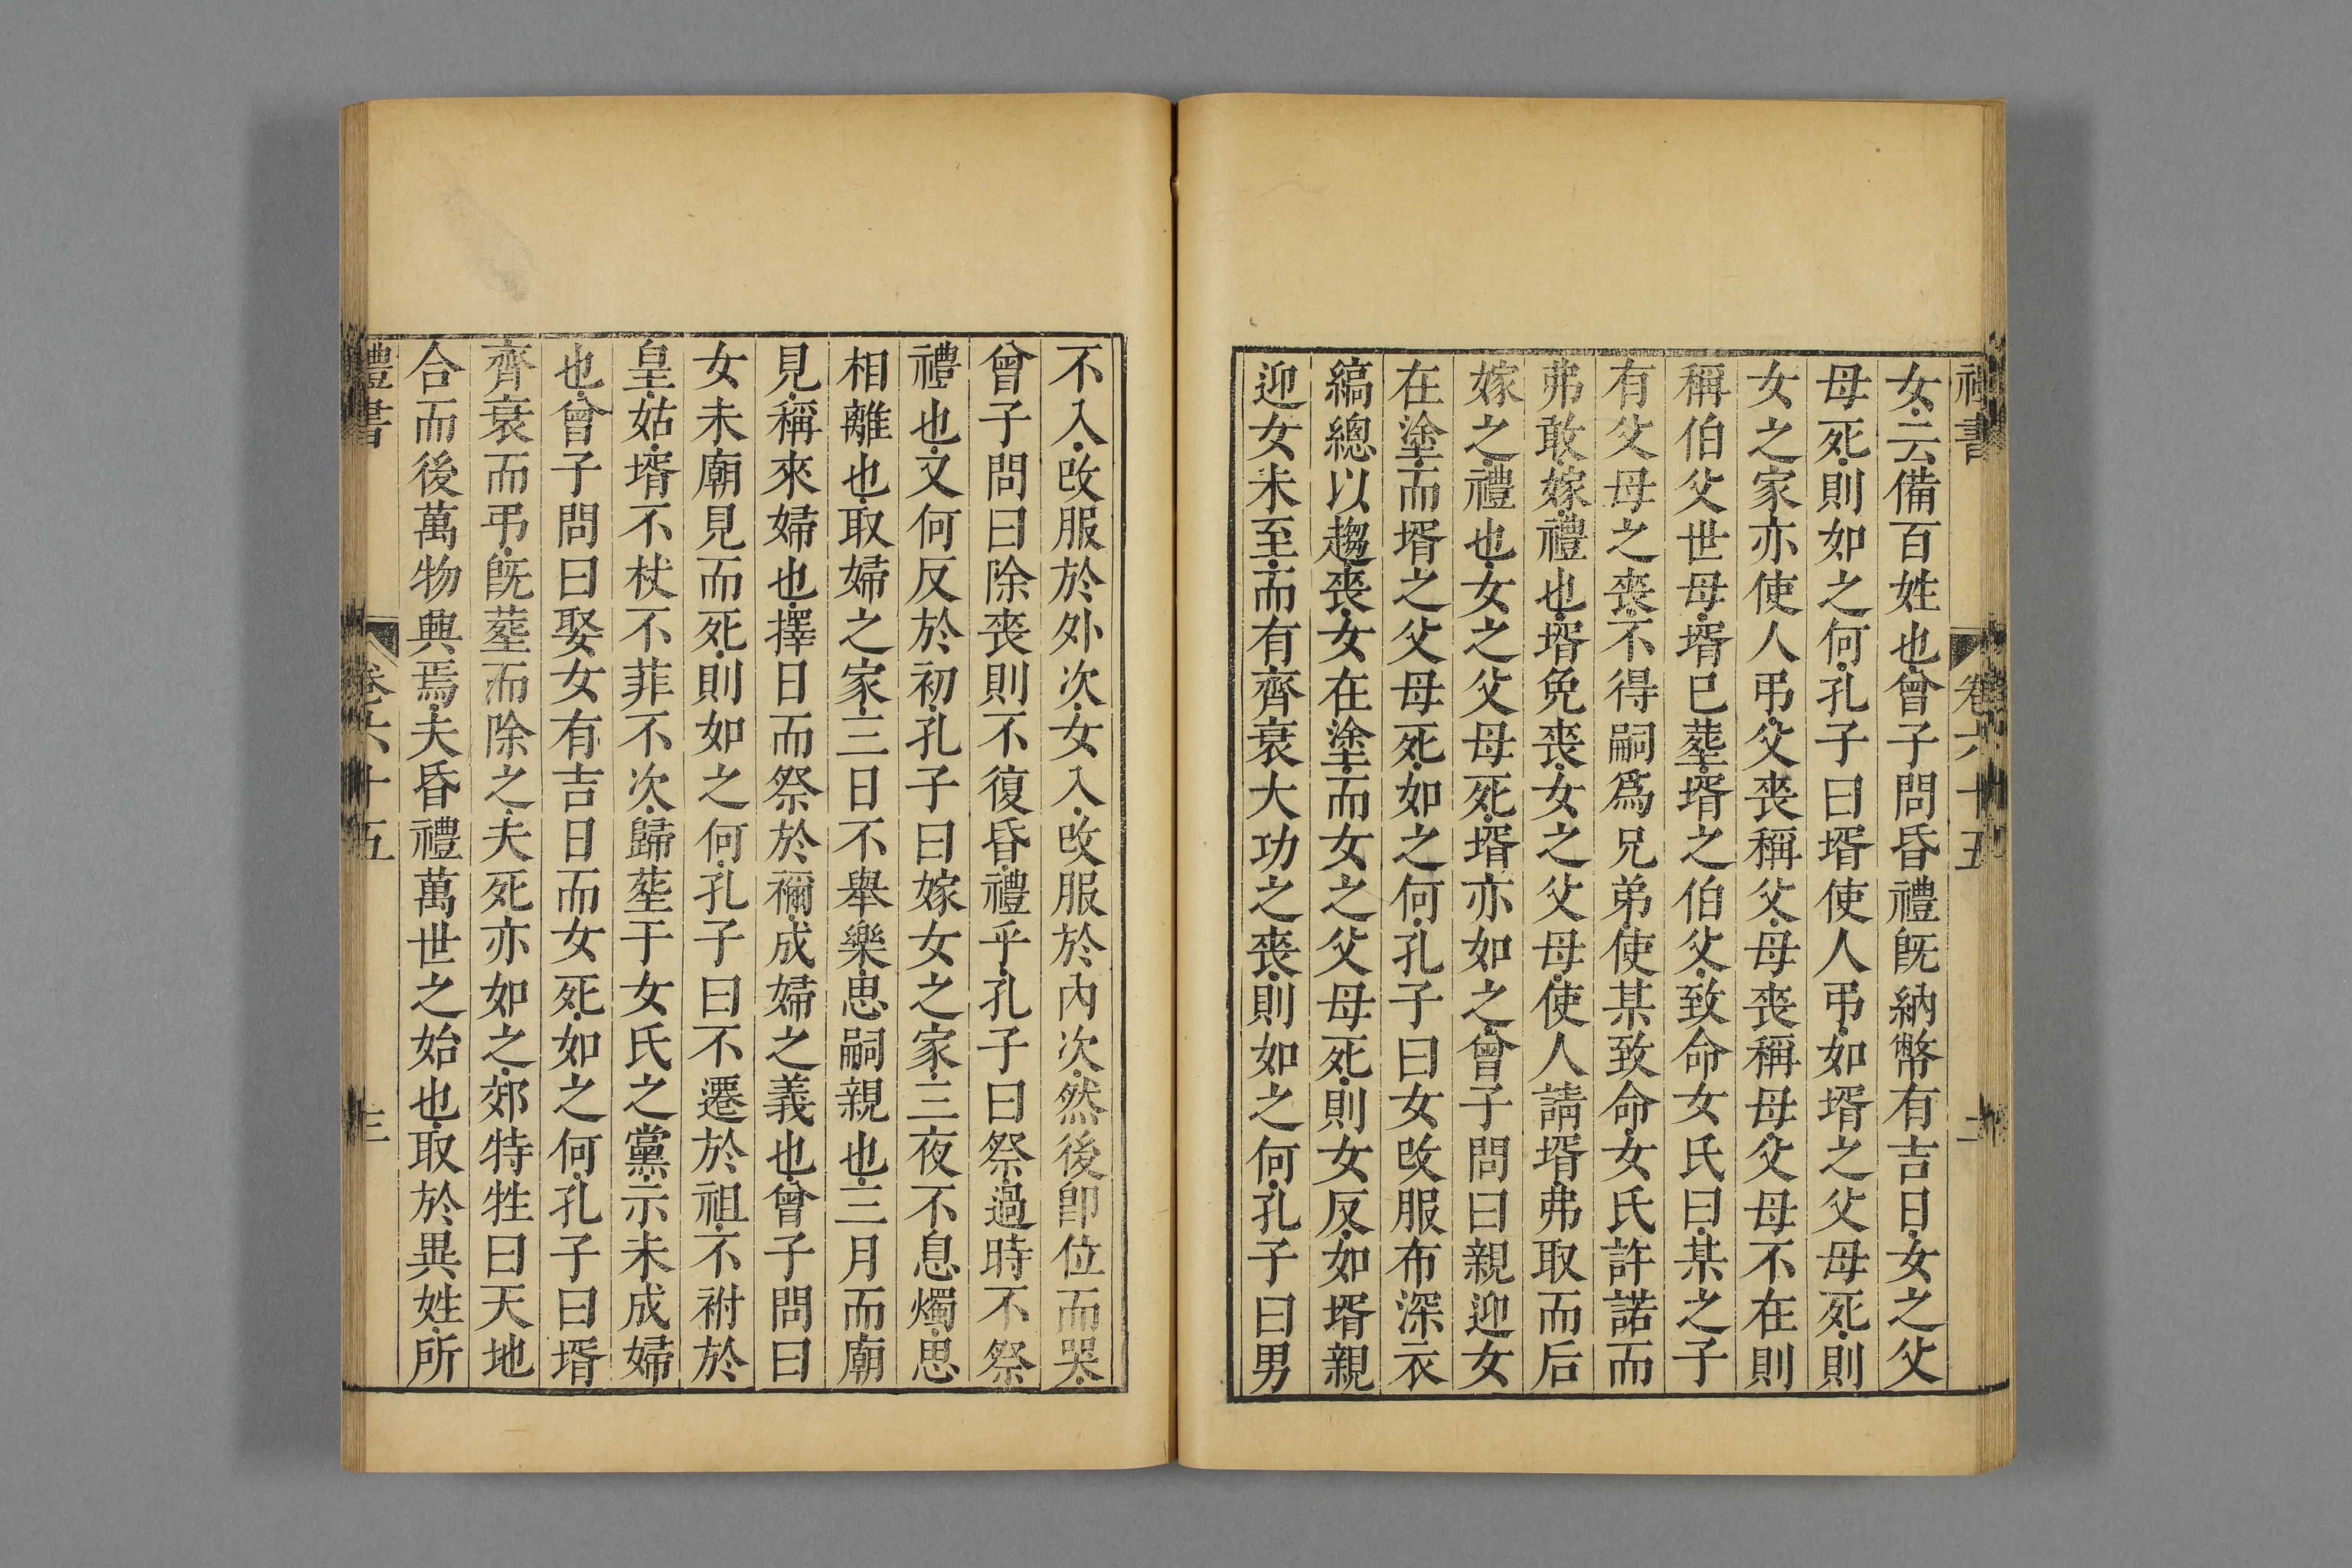 禮書 卷六十五 二
女云備百姓也曾子問昏禮旣納幣有吉日女之父
母死則如之何孔子曰壻使人弔如壻之父母死則
女之家亦使人弔父喪稱父母喪稱母父母不在則
稱伯父世母壻已塟壻之伯父致命女氏曰某之子
有父母之喪不得嗣爲兄弟使某致命女氏許諾而
弗敢嫁禮也壻免喪女之父母使人請壻弗取而后
嫁之禮也女之父母死壻亦如之曾子問曰親迎女
在塗而壻之父母死如之何孔子曰女改服布深衣
縞總以趨喪女在塗而女之父母死則女反如壻親
迎女未至而有齊衰大功之喪則如之何孔子曰男
不入改服於外次女入改服於內次然後卽位而哭
曾子問曰除喪則不復昏禮乎孔子曰祭過時不祭
禮也又何反於初孔子曰嫁女之家三夜不息燭思
相離也取婦之家三日不舉樂思嗣親也三月而廟
見稱來婦也擇日而祭於禰成婦之義也曾子問曰
女未廟見而死則如之何孔子曰不遷於祖不祔於
皇姑壻不杖不菲不次歸塟于女氏之黨示未成婦
也曾子問曰娶女有吉日而女死如之何孔子曰壻
齊衰而弔旣塟而除之夫死亦如之郊特牲曰天地
合而後萬物興焉夫昏禮萬世之始也取於異姓所
禮書 卷六十五 三